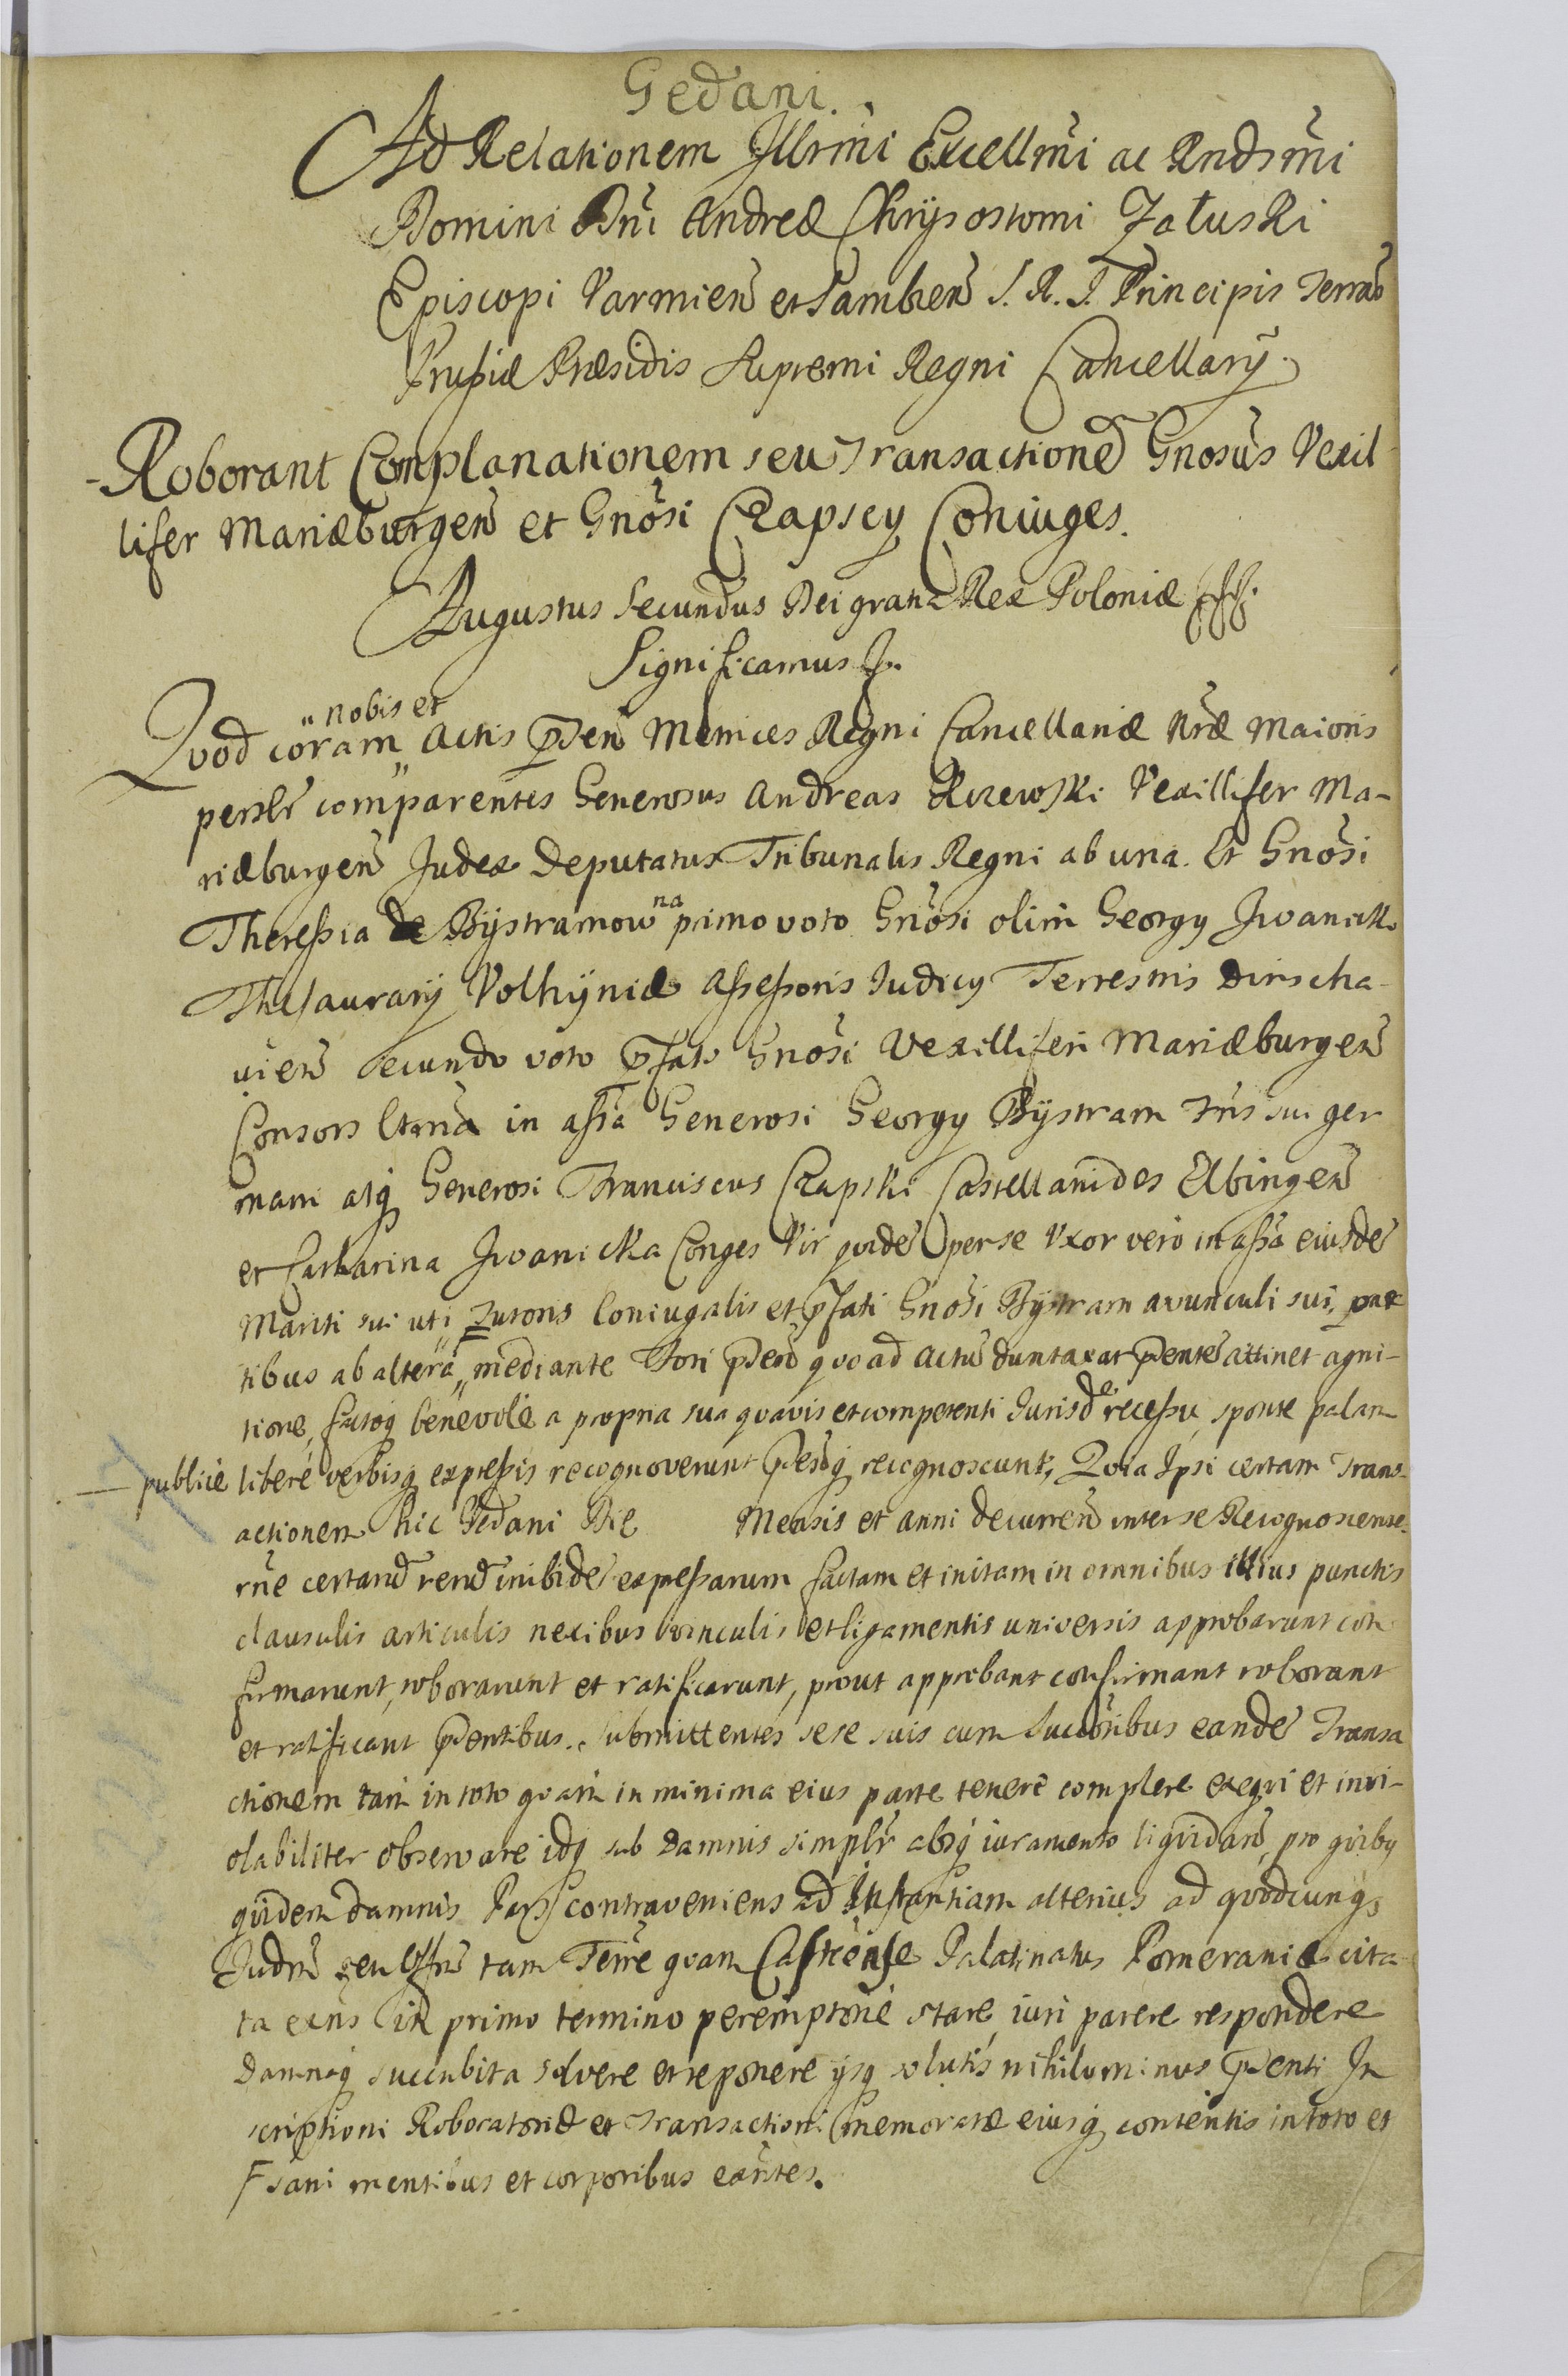 Gedani.
Ad Relationem Jllrmi Excellmi ac Rndsmi
Domini Dni Andreæ Chrysostomi Załuski
Episcopi Varmien et Sambien S. R. I. Principis Terrar
Prussiæ Præsidis Supremi Regni Cancellarÿ
Roborant Complanationem seu Transactione Gnosus Vexil
lifer Mariæburgen et Gnosi Czapscy Coniuges.
Augustus Secundus Dei gratia Rex Poloniæ
Significamus
Quod coram " nobis et Actis pden Metrices Regni Cancellariæ Nræ Maioris
persler comparentes Generosus Andreas Vexillifer Ma-
riæburgen Judex Deputatus Tribunalis Regni ab una. Et Gnosi
Theressia de Bÿstramowna primo voto Gnosi olim Georgy Jwanicki
Thesaurarÿ Volhÿniæ Assessoris Judicy Terrestris Dirscha-
uien secundo voto pfati Gnosi Vexilliferi Mariæburgen
Consors in assa Generosi Georgy Bÿstram fris sui ger
mani atq Generosi Franciscus Czapski Castellanides Elbingen
et Catharina Jwanicka Conges Vir quide per se Vxor vero in assa eiusde
Mariti sui uti Tutoris Coniugalis et pfati Gnosi Bÿstram avunculi sui, par
tibus ab altera " mediante fori pden quoad actu duntaxat pdente attinet agni-
tione, factoq benevole a propria sua quavis et competenti Jurisde recessu, sponte palam
publice libere verbisq expressis recognoverunt pdesq recognoscunt, Quia Ipsi certam Trans-
actionem hic Gedani Die Mensis et anni decurren inter se Recognoscente.
rne certarud rerud inibide expressarum factam et initam in omnibus illius punctis
clausulis articulis nexibus vinculis et ligamentis universis approbarunt con
firmarunt, roborarunt et ratificarunt, prout approbant confirmant roborant
et ratificant pdentibus. Submittentes sese suis cum Succoribus eande Transa
ctionem tam in toto quam in minima eius parte tenere complere exequi et invi-
olabiliter observare idq sub damnis simplr absq iuramento liquidan, pro quibus
quidem damnis Pars contraveniens ad Instantiam alterius ad quodcunq
Judm seu Offm tam Terre quam Castrense Palatinatus Pomeraniæ cita
ta exns in primo termino peremptorie stare, iuri parere respondere
damnaq succubita solvere et reponere ÿsq solutis nihilominus pdenti In
scriptioni Roboratoriæ et Transactioni memoratæ eiusq contentis in toto et
F sani mentibus et corporibus exntes.